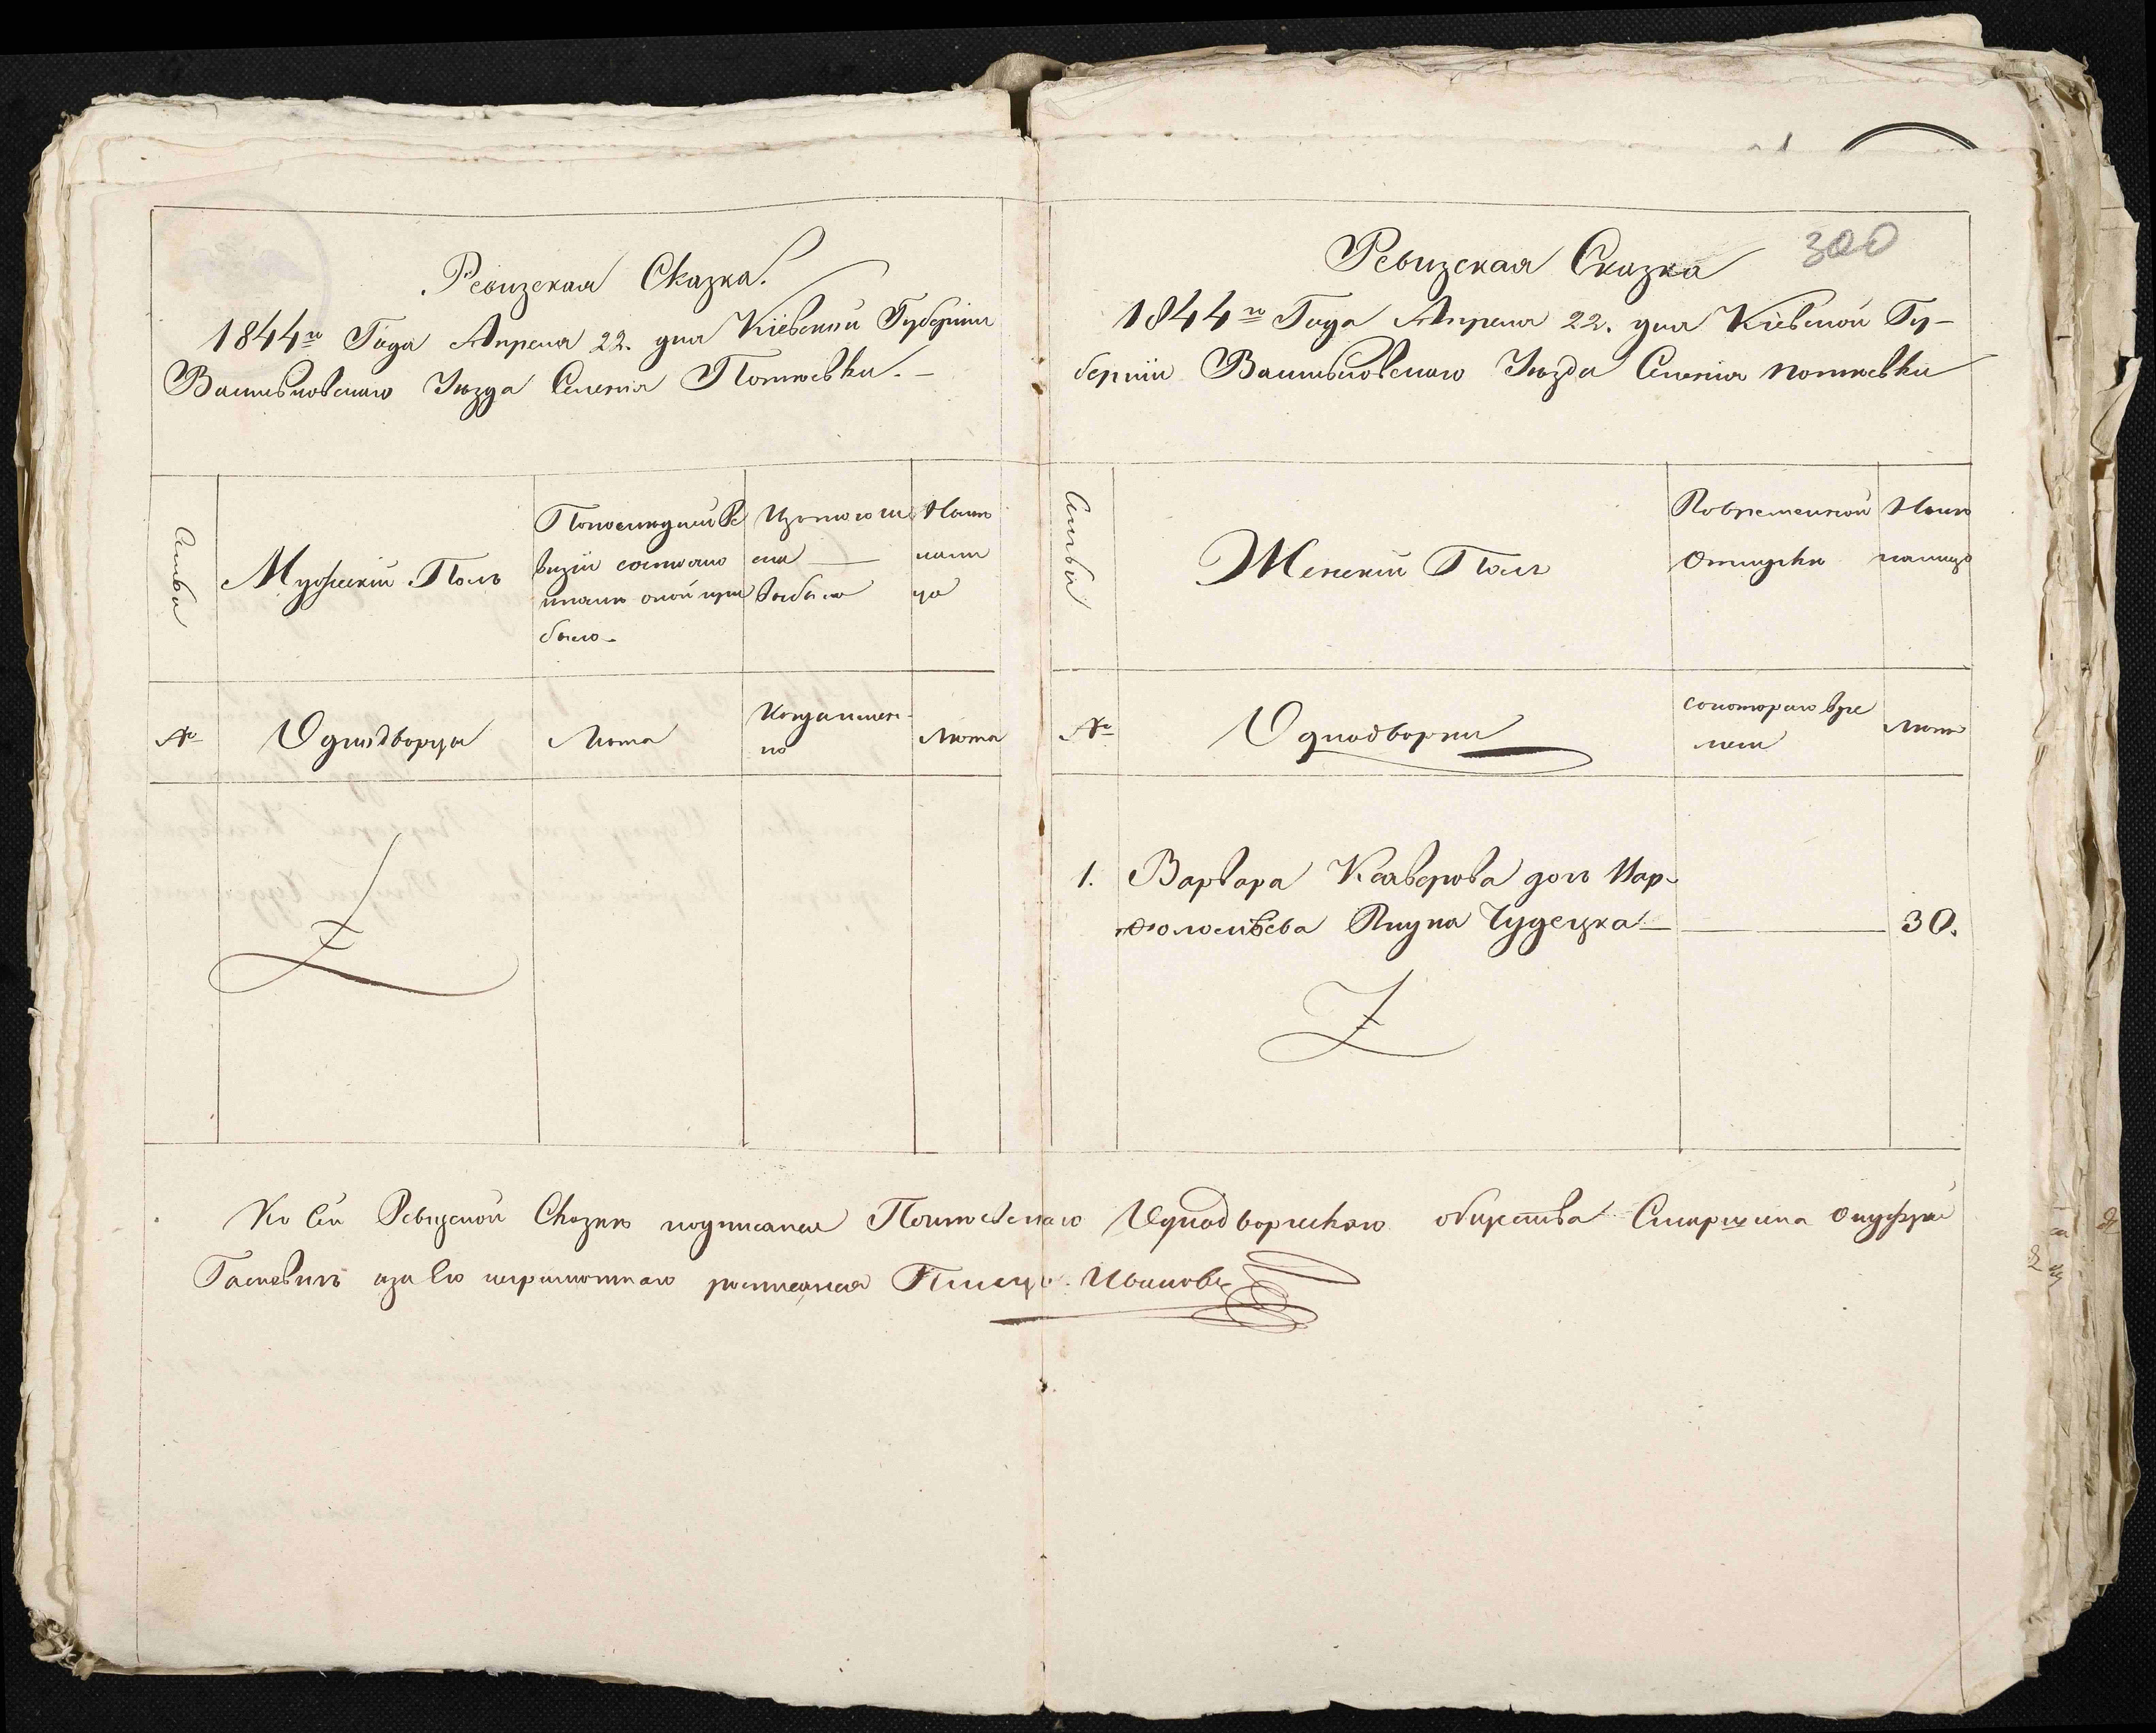 Ревизская Сказка.
1844го Года Апреля 22. дня Кіевской Губерніи
Васильковскаго Уезда Селенія Потіевки. —
Семьи
Мужескій Полъ
По последней Ре
визіи состояло
и после оной при
было.
Изтого чи
сла —
выбыло
Ныне
нали
цо
№
Однодворцы
Лета
Когда имен
но
Лета
300
Ревизская Сказка
1844го Года Апреля 22. дня Кіевской Гу-
берніи Васильковскаго Уезда Селенія потіевки
Семьи
Женскій Полъ
Во временной
отлучке
Ныне
налицо
№
Однодворки
с котораго вре
мени
Лета
1. Варвара Ксаверова дочь Вар-
фоломеева Внука Чудецка — 30.
Ко Сей Ревизской Сказке подписался Потіевскаго Однодворческаго общества Старшина Онуфрій
Гасевичъ а за его неграмотнаго росписался Писарь Ивановъ